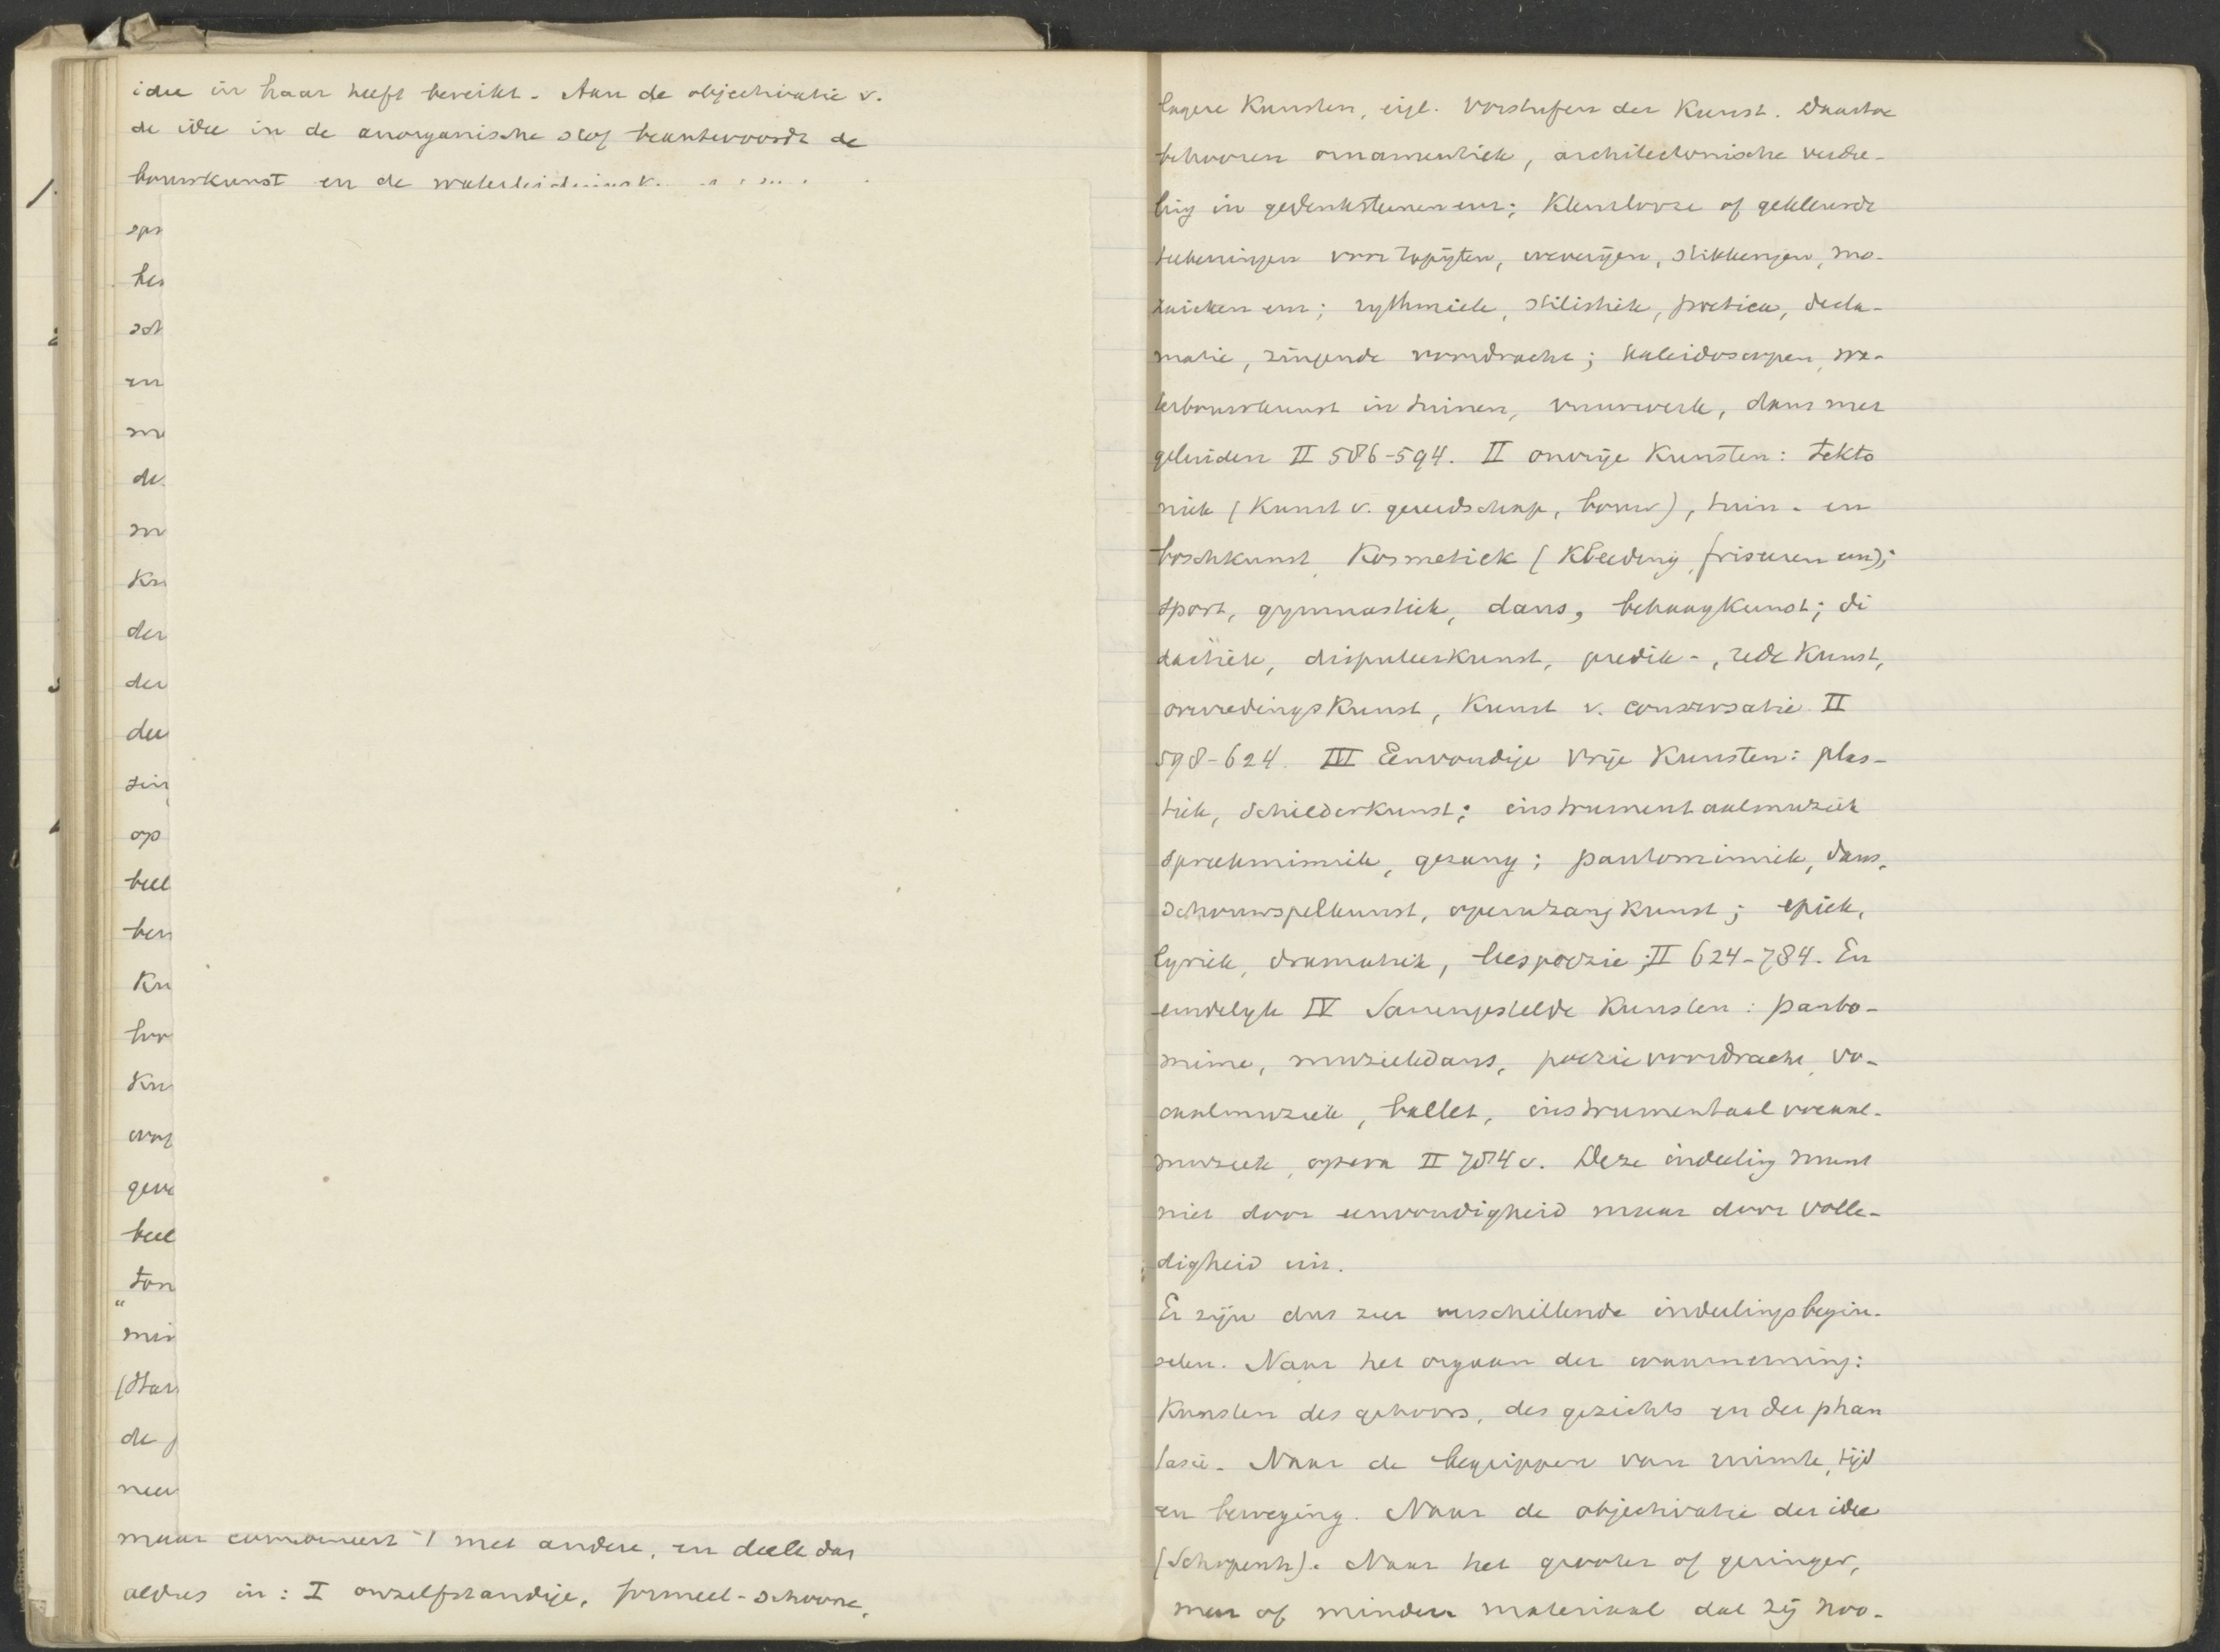 idee in haar heeft bereikt. Aan de objectivatie v.
de idee in de anorganische stof beantwoordt de
bouwkunst en de
1.
spr
hei
sch
en
me
de
m
Kn
der
der
dee
ting
op
beel
ben
Kn
hoo
Kn
wat
geve
beel
ton
"
min
(Har
de
neer
maar combineert 't met andere, en deelt dus
aldus in: I onzelfstandige, formeel-schoone,
lagere Kunsten, eigl. Vorstufen der Kunst. Daartoe
behooren ornamentiek, architectonische verdee-
ling in gedenksteenen enz; Kleurlooze of gekleurde
teekeningen voor tapijten, weverijen, stikkerijen, mo-
zaieken enz; rythmiek, stilistiek, poetica, decla-
matie, zingende voordracht; kaleidoscopen, wa-
terbouwkunst in tuinen, vuurwerk, dans met
geluiden II 586-594. II onvrije Kunsten: tekto
niek (Kunst v. gereedschap, bouw), tuin- en
boschkunst, Kosmetiek (Kleeding, friseuren enz);
sport, gymnastiek, dans, behaagkunst; di
dactiek, disputeerkunst, predik-, redekunst,
overredingskunst, Kunst v. conversatie II
598-624. III Eenvoudige Vrije Kunsten: plas-
tiek, Schilderkunst; instrumentaalmuziek
spraakmimiek, gezang; pantomimiek, dans,
schouwspelkunst, operazangkunst; epiek,
lyriek, dramatiek, leespoëzie; II 624-784. En
eindelijk IV Samengestelde Kunsten: panto-
mime, muziekdans, poëzievoordracht, vo-
caalmuziek, ballet, instrumentaal vocaal-
muziek, opera II 784 v. Deze indeeling munt
niet door eenvoudigheid maar door volle-
digheid uit.
Er zijn dus zeer verschillende indeelingsbegin-
selen. Naar het orgaan der waarneming:
Kunsten des gehoors, des gezichts en der phan
tasie. Naar de begrippen van ruimte, tijd
en beweging. Naar de objectivatie der idee
(Schopenh). Naar het grooter of geringer,
meer of minder materiaal dat zij noo-